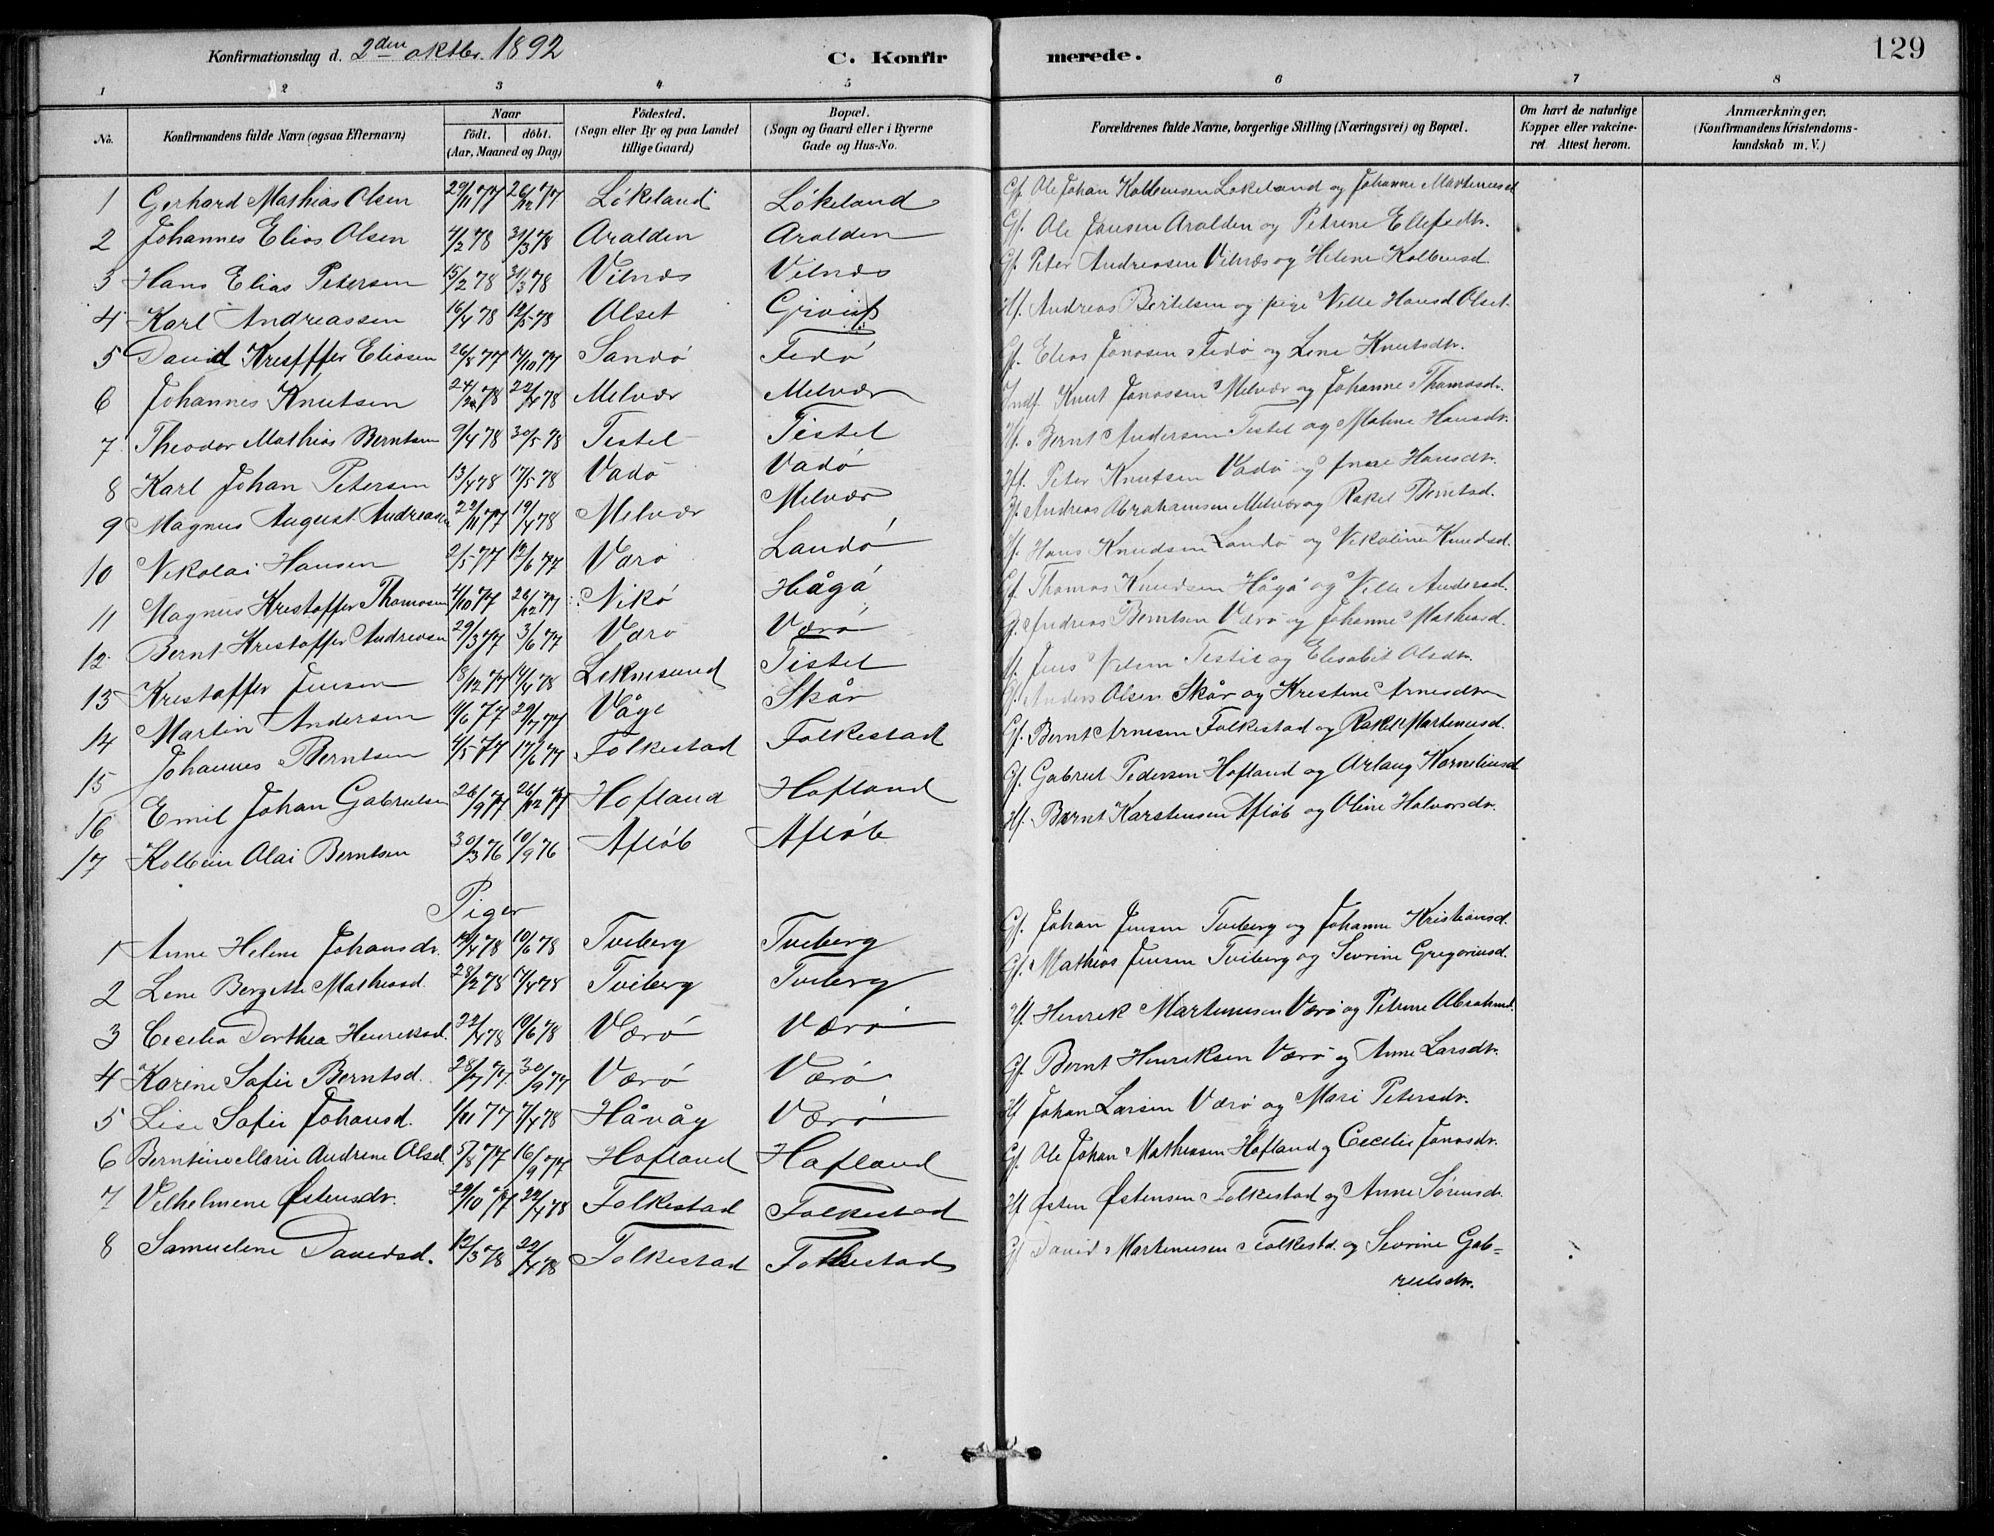 Konfirmationsdag d. 2den oktbr. 1892 C. Konfirmerede. 129
1 2 3 4 5 6 7 8
No. Konfirmandens fulde Navn (ogsaa Efternavn) Naar födt. döbt. (Aar, Maaned og Dag) Födested. (Sogn eller By og paa Landet tillige Gaard) Bopæl. (Sogn og Gaard eller i Byerne Gade og Hus-No. Forældrenes fulde Navne, borgerlige Stilling (Næringsvei) og Bopæl. Om havt de naturlige Kopper eller vakcineret. Attest herom. Anmærkninger, (Konfirmandens Kristendomskundskab m. V.)
1 Gerhard Mathias Olsen 29/11 77 26/12 77 Løkeland Løkeland Gf. Ole Johan Kolbensen Løkeland og Johanne Martinusd
2 Johannes Elias Olsen 4/2 78 31/3 78 Aralden Aralden Gf. Ole Jansen Aralden og Petrine Ellefsdtr.
3 Hans Elias Petersen 15/2 78 31/3 78 Vilnæs Vilnæs Gf. Peter Andreasen Vilnæs og Helene Kolbensd
4 Karl Andreassen 16/4 78 12/5 78 Olset Hf. Andreas Bertelsen og pige Nille Hansd Olset
5 David Krestffer Eliasen 26/8 77 14/10 77 Sandø Fedø Gf. Elias Jonasen Fedø og Lene Knutsdtr.
6 Johannes Knutsen 24/2 78 22/4 78 Melvær Melvær Indf. Knut Jonassen Melvær og Johanne Thomasdr.
7 Theodor Mathias Berntsen 9/4 78 30/5 78 Tistel Tistel Hf. Bernt Andersen Tistel og Maline Hansdr.
8 Karl Johan Petersen 13/4 78 17/5 78 Vadø Vadø Hf. Peter Knutsen Vadø og Hansdr.
9 Magnus August Andreasen 22/11 77 19/4 78 Melvær Melvær Gf. Andreas Abrahamsen Melvær og Rakel Berntsd.
10 Nikolai Hansen 2/5 77 12/6 77 Værø Landø Hf. Hans Knudsen Landø og Nikoline Knudsd.
11 Magnus Krestoffer Thomasen 4/10 77 26/12 77 Nikø Hågå Gf. Thomas Knudsen Hågå og Nille Andersd.
12 Bernt Krestoffer Andreasen 29/3 77 3/6 77 Værø Værø Gf. Andreas Berntsen Værø og Johanne Mathiasd.
13 Krestoffer Jensen 8/12 77 14/4 78 Leknesund Tistel Hf. Jens Nilsen Tistel og Elisabet Olsdtr.
14 Martin Andersen 11/6 77 29/7 77 Våge Skår Gf. Anders Olsen Skår og Krestine Arnesdtr
15 Johannes Berntsen 4/5 77 17/6 77 Folkestad Folkestad Gf. Bernt Arnesen Folkestad og Rakel Martinusd.
16 Emil Johan Gabrielsen 26/9 77 26/12 77 Hofland Hofland Gf. Gabriel Pedersen Hofland og Arlaug Korneliusd
17 Kolbein Olai Berntsen 30/3 76 10/9 76 Afløb Afløb Hf. Bernt Karstensen Afløb og Oline Halvorsdr.
Piger
1 Anne Helene Johansdr. 14/4 78 10/6 78 Tveberg Tveberg Gf. Johan Jensen Tveberg og Johanne Kristiansd.
2 Lene Bergette Mathiasd. 28/2 78 14/4 78 Tviberg Tviberg Gf. Mathias Jensen Tviberg og Sevrine Gregoriusd.
3 Cecelia Dorthea Henriksd. 22/4 78 10/6 78 Værø Værø Hf. Henrik Martinusen Værø og Petrine Abrahmd.
4 Karine Safie Berntsd. 28/7 77. 30/9 77 Værø Værø Gf. Bernt Henriksen Værø og Anne Larsdtr.
5 Lise Safie Johansd. 1/11 77 7/4 78 Håvåg Værø Hf Johan Larsen Værø og Mari Petersdr.
6 Berntine Marie Andrine Olsd. 5/8 77 16/9 77 Hofland Hofland Gf. Ole Johan Mathiassen Hofland og Cecelie Jonasdr.
7 Vilhelmene Østensdr. 29/10 77 22/4 78 Folkestad Folkestad Hf Østen Østensen Folkestad og Anne Sørensdr.
8 Samueline Davidsd. 12/3 78 22/4 78 Folkestad Folkestad Gf David Martinusen Folkestd. og Sevrine Gab=
rielsdtr.